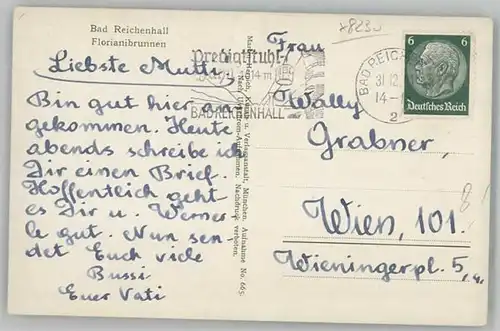 Bad Reichenhall
Florianibrunnen
Liebste Mutti,
Bin gut hier an-
gekommen. Heute
abends schreibe ich
Dir einen Brief.
Hoffentlich geht
es Dir u. Werner-
le gut. Nun sen-
det Euch viele
Bussi
Euer Vati
Predigtstuhl-
BAD REICHENHALL
Nachdruck verboten.
Frau
Wally
Grabner,
Wien, 101.
Wieningerpl. 5,
BAD REICH
31.12
14-
2
6 6
Deutsches Reich